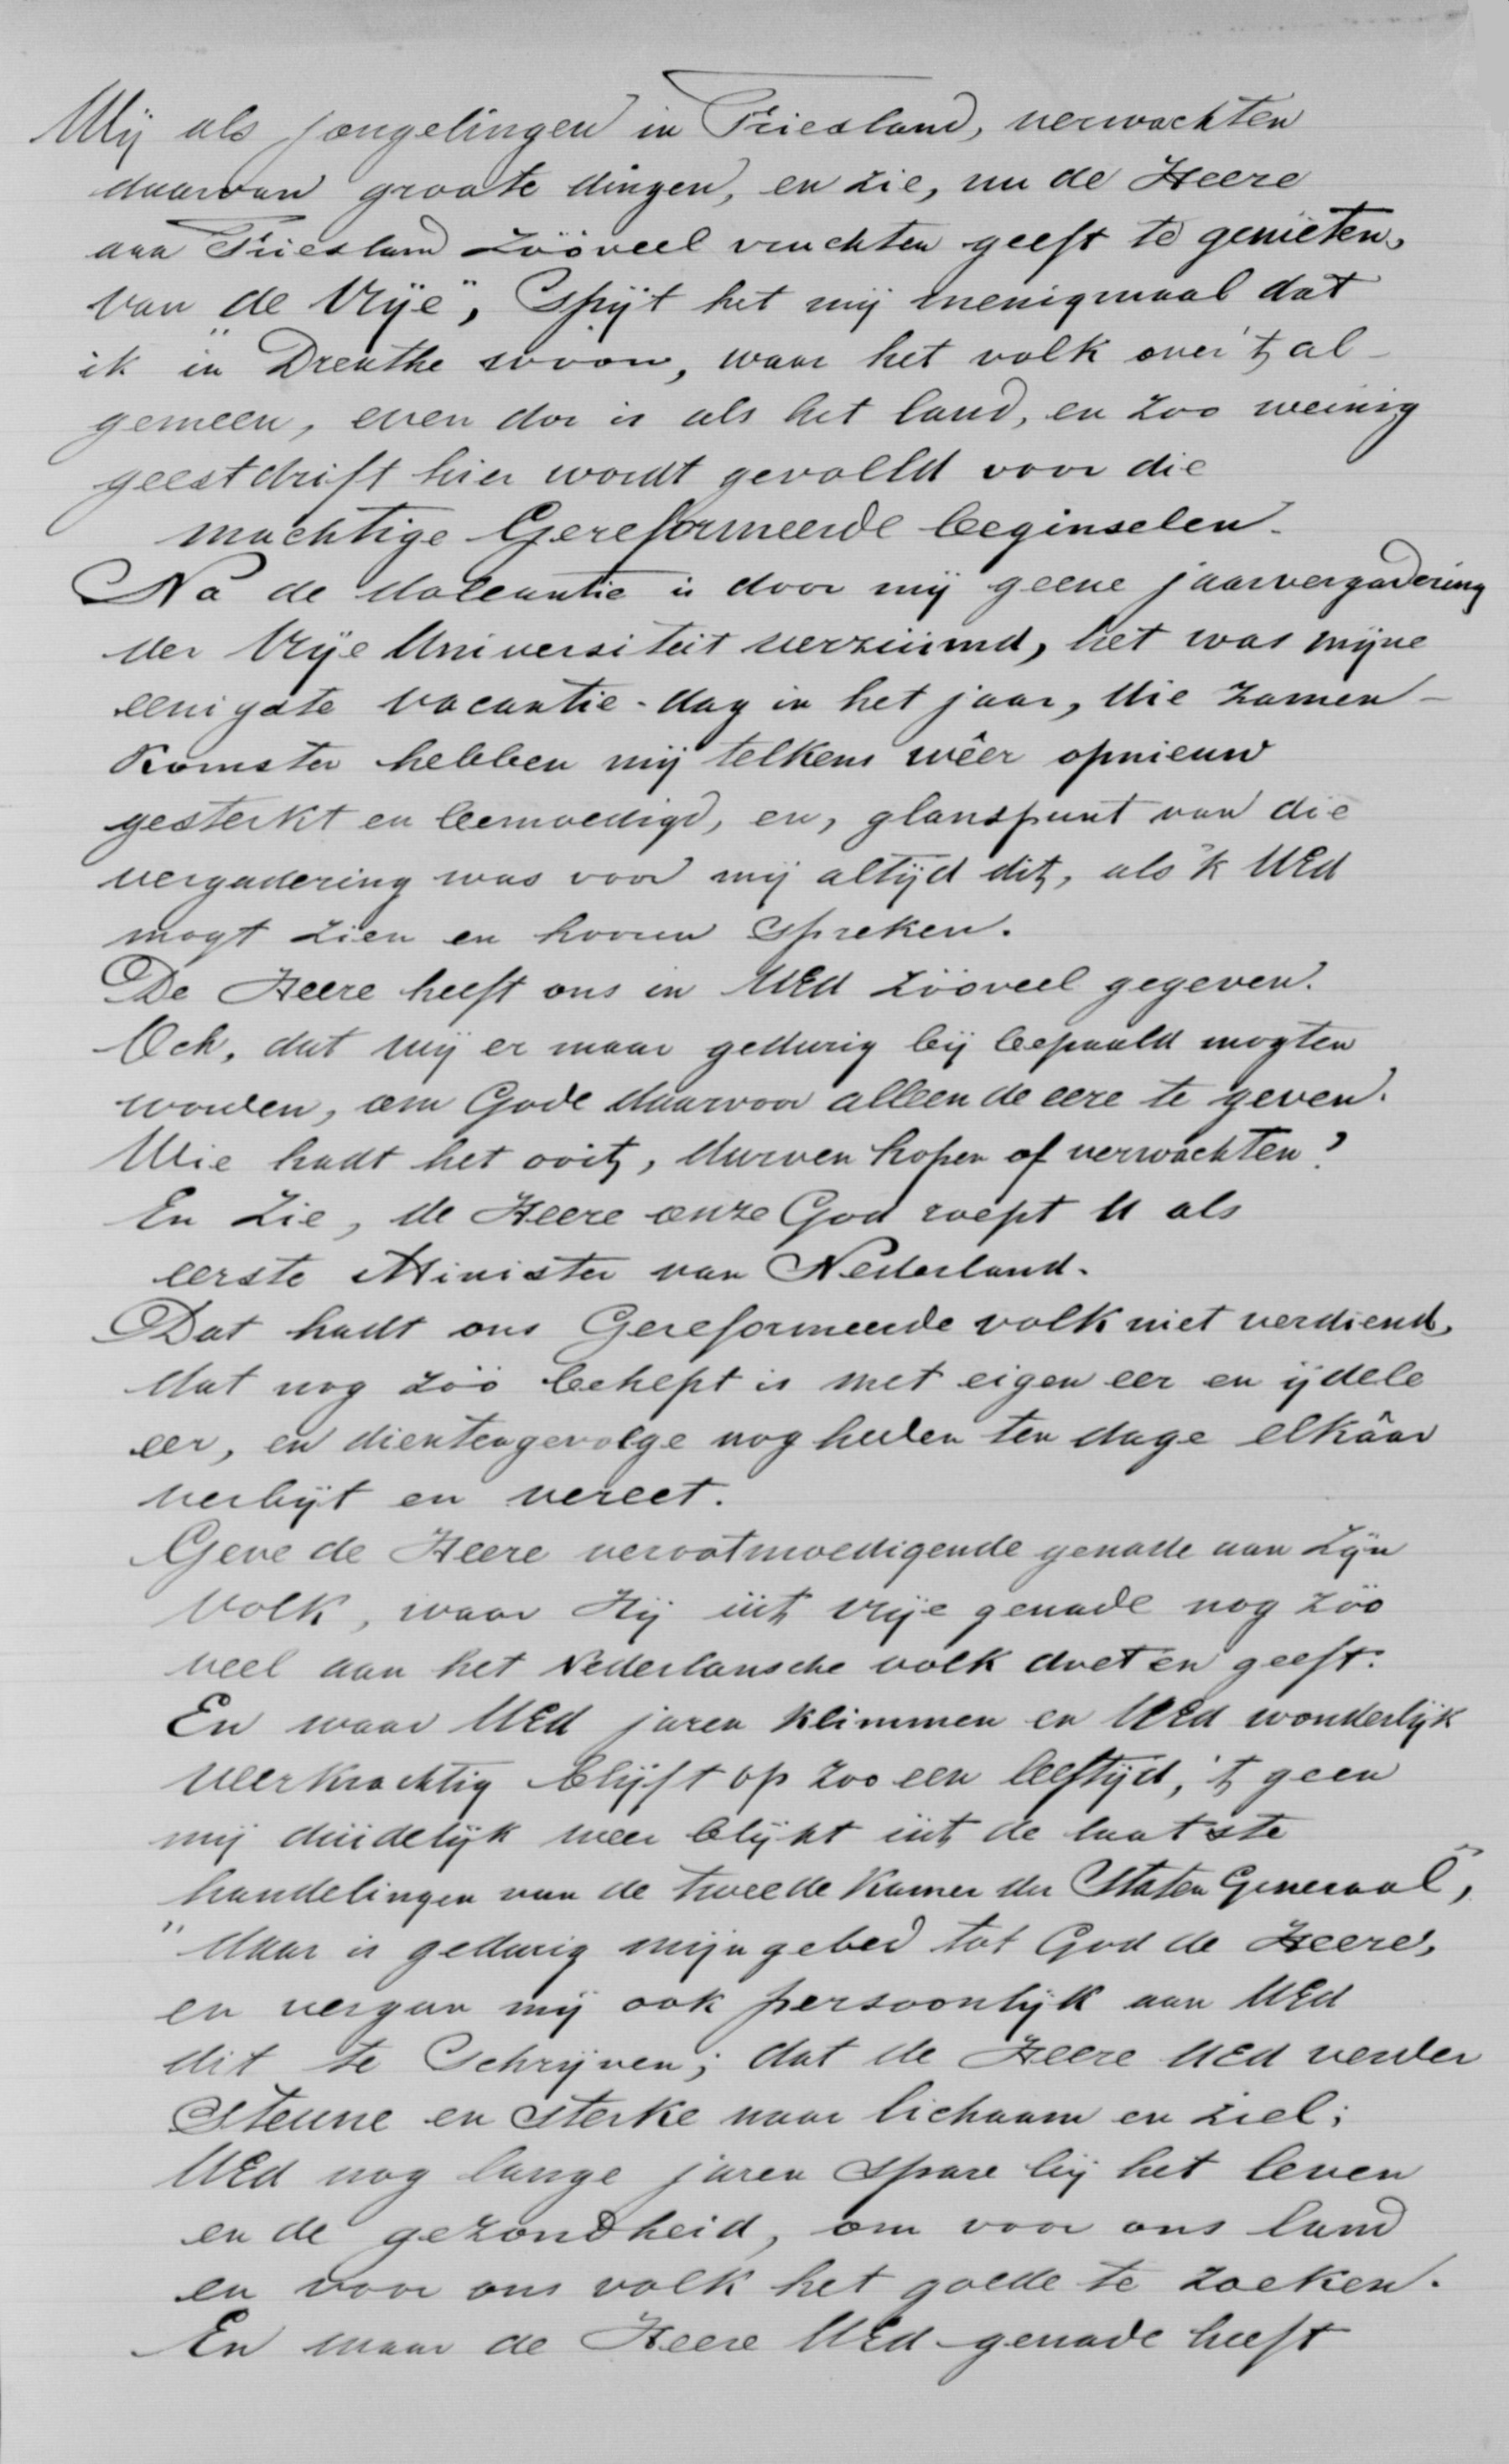 Wij als jongelingen in Friesland, verwachten
daarvan groote dingen, en zie, nu de Heere
aan Friesland zóóveel vruchten geeft te genieten,
van "de Vrije", spijt het mij menigmaal dat
ik in Drenthe woon, waar het volk over 't al-
gemeen, even dor is als het land, en zoo weinig
geestdrift hier wordt gevoeld voor die
machtige Gereformeerde beginselen.
Na de Doleantie is door mij geene jaarvergadering
der Vrije Universiteit verzuimd, het was mijne
eenigste vacantie-dag in het jaar, die zamen-
komsten hebben mij telkens wêer opnieuw
gesterkt en bemoedigd, en, glanspunt van die
vergadering was voor mij altijd dit, als 'k UEd
mogt zien en hooren spreken.
De Heere heeft ons in UEd zóóveel gegeven.
Och, dat wij er maar gedurig bij bepaald mogten
worden, om Gode daarvoor alleen de eere te geven.
Wie hadt het ooit, durven hopen of verwachten?
En zie, de Heere onze God roept U als
eerste Minister van Nederland.
Dat hadt ons Gereformeerde volk niet verdiend,
dat nog zóó behept is met eigen eer en ijdele
eer, en dientengevolge nog heden ten dage elkâar
verbijt en vereet.
Geve de Heere verootmoedigende genade aan Zijn
volk, waar Hij uit vrije genade nog zóó
veel aan het Nederlansche volk doet en geeft.
En waar UEd jaren klimmen en UEd wonderlijk
veerkrachtig blijft op zoo een leeftijd, 't geen
mij duidelijk weer blijkt uit de laatste
handelingen van de tweede Kamer der Staten Generaal",
"daar is gedurig mijn gebed tot God de Heere,
en vergun mij ook persoonlijk aan UEd
dit te schrijven; dat de Heere UEd verder
steune en sterke naar lichaam en ziel;
UEd nog lange jaren spare bij het leven
en de gezondheid, om voor ons land
en voor ons volk het goede te zoeken.
En waar de Heere UEd genade heeft